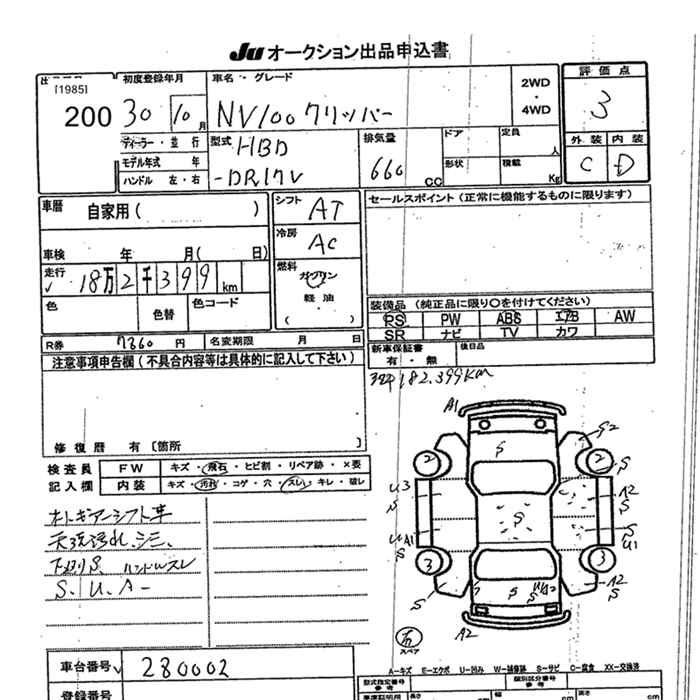 JU オークション出品申込書
[1985]
200
初度登録年月
30 10 月
車名・グレード
NV100クリッパー
2WD
・
4WD
評価点
3
ディーラー・並行
モデル年式 年
ハンドル 左・右
型式
HBD
-DR17V
排気量
660
CC
ドア
定員
人
形状
積載
Kg
外装
内装
C
D
車暦
自家用( )
車検 年 月( 日)
走行
18万2千399 km
色
色替
色コード
シフト
AT
冷房
AC
燃料
ガソリン
・
軽油
( )
セールスポイント(正常に機能するものに限ります)
装備品(純正品に限り○を付けてください)
PS PW ABS エアB AW
SR ナビ TV カワ
R券 7360 円
名変期限 月 日
新車保証書
有・無
後日品
注意事項申告欄(不具合内容等は具体的に記入して下さい)
修復歴 有〔箇所
182,399km
検査員
記入欄
FW
キズ・飛石・ヒビ割・リペア跡・×要
内装
キズ・汚れ・コゲ・穴・スレ・キレ・破レ
オートギアーシフト車
天張汚れ、シミ、
下廻りS、ハンドルスレ
S、U、A-
A1
S
S2
2
2
S
U3
S
A2
S
S
UA1
S
S
U1
3
3
S
A2
S
S
A2
スペア
A-キズ E-エクボ U-凹み W-補修跡 S-サビ C-腐食 XX-交換済
車台番号
280002
登録番号
型式指定番号
参考
類別区分番号
参考
長さ
cm
cm
cm